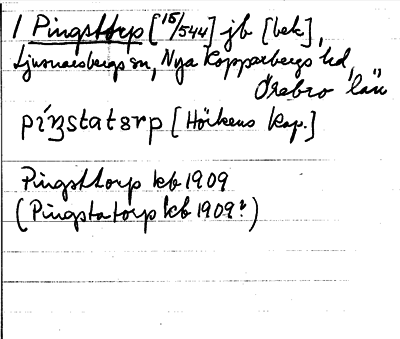 1 Pingsttorp [15/544] jb [bek],
Ljusnarsbergs sn, Nya Kopparbergs hd,
Örebro län
píŋstatɔrp [Hörkens kap.]
Pingsttorp kb 1909
(Pingstatorp kb 1909?)